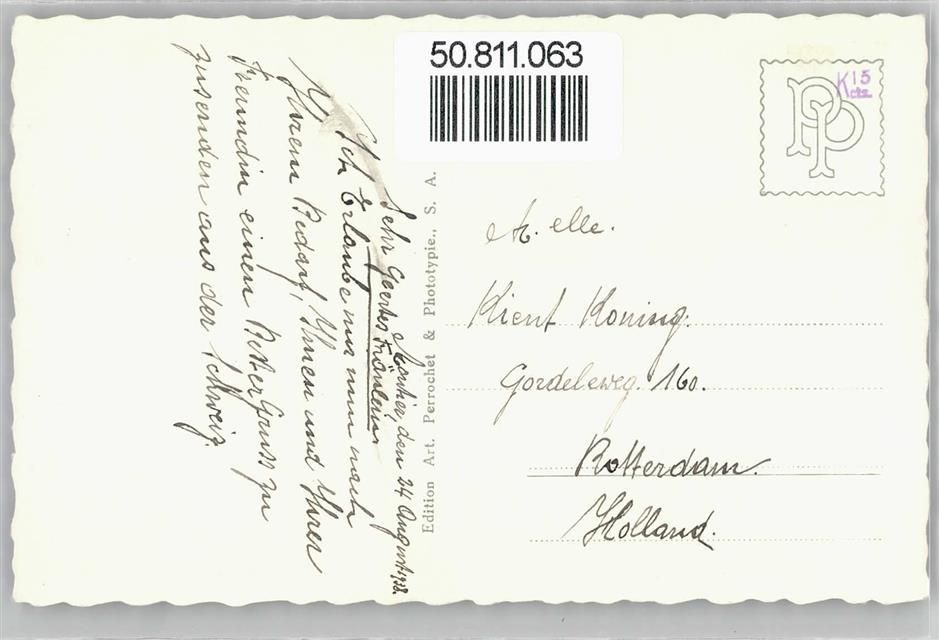 50.811.063
K 15
PP
Moutier, den 24 August 1938.
Sehr Geertes Fräulein!
Ich Erlaube mir nun nach
Ihrem Bedarf, Ihnen und Ihrer
Freundin einen Gruss zu
zusenden aus der Schweiz.
Edition Art. Perrochet & Phototypie., S. A.
M. elle.
Kient Koning.
Gordelweg. 160.
Rotterdam.
Holland.